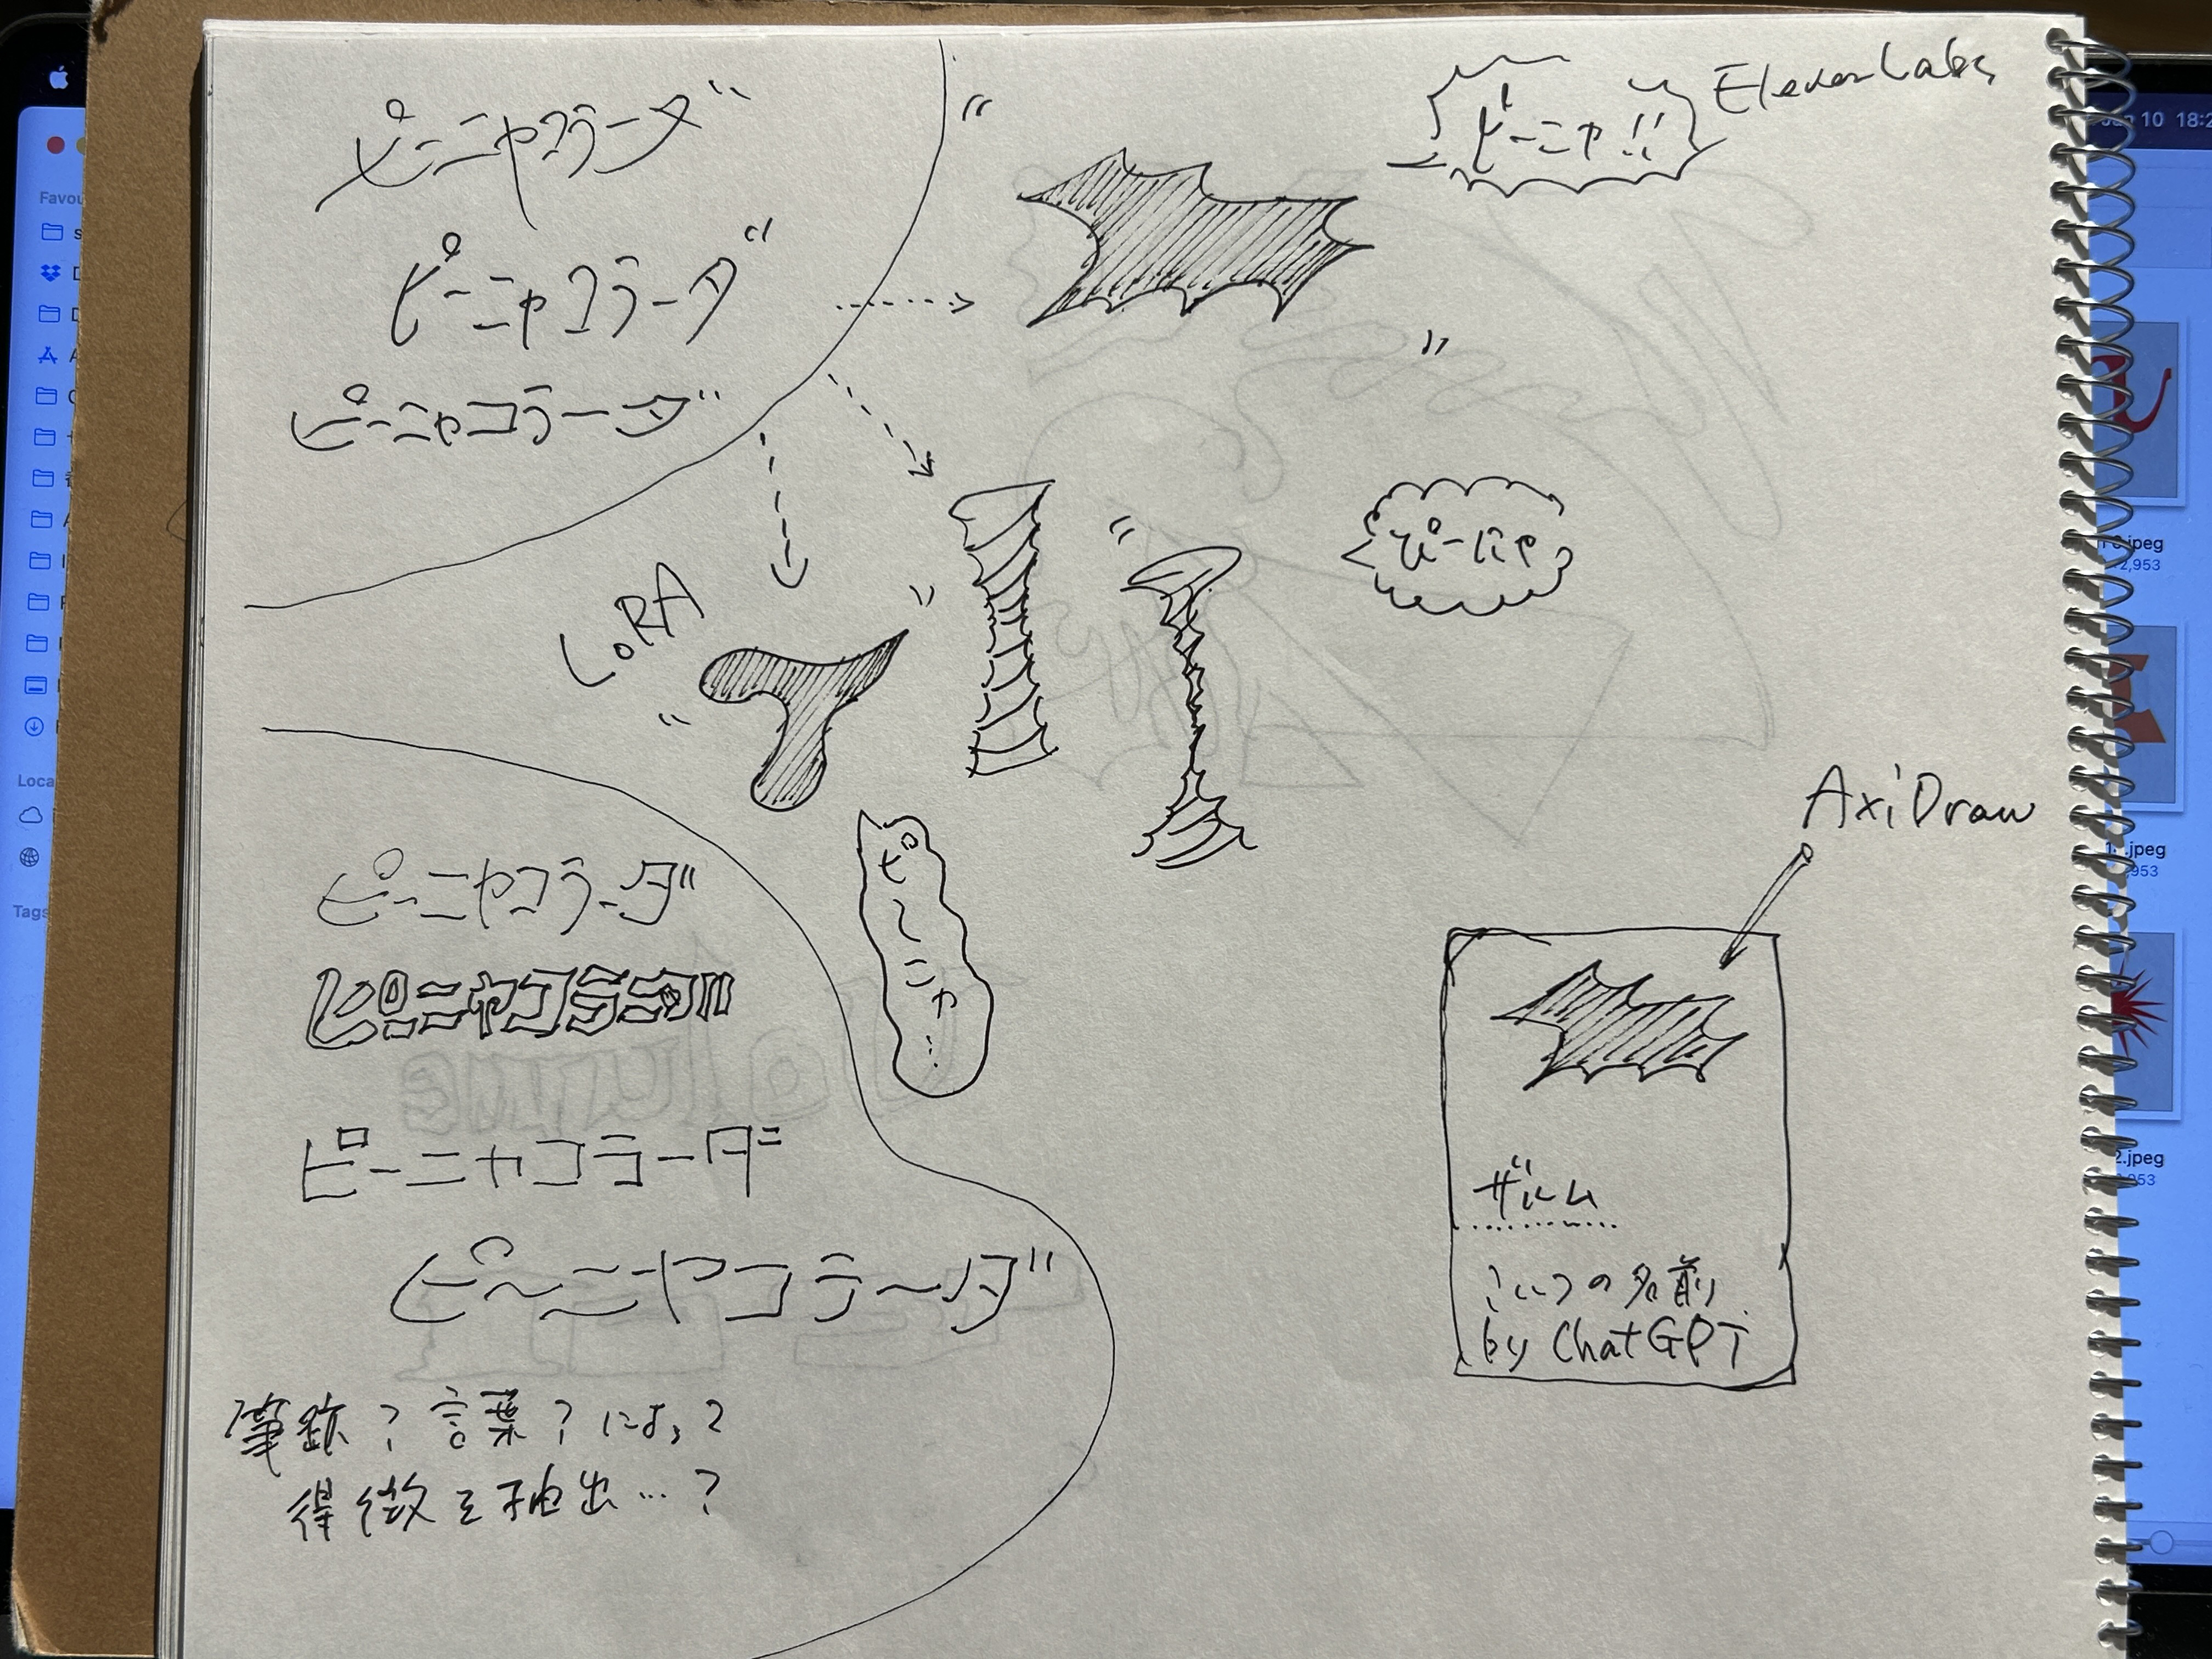 ピーニャコラーダ
ピーニャコラーダ
ピーニャコラーダ
ピーニャ!!
ElevenLabs
ぴーにゃ
LoRA
ピーニャ…
ピーニャコラーダ
ピーニャコラーダ
ピーニャコラーダ
ピ〜ニャコラ〜ダ
筆跡?言葉?によって
特徴を抽出…?
AxiDraw
ザルム
こいつの名前
by ChatGPT
Favou
Loca
Tags
10 18:2
.jpeg
2,953
.jpeg
953
2.jpeg
953